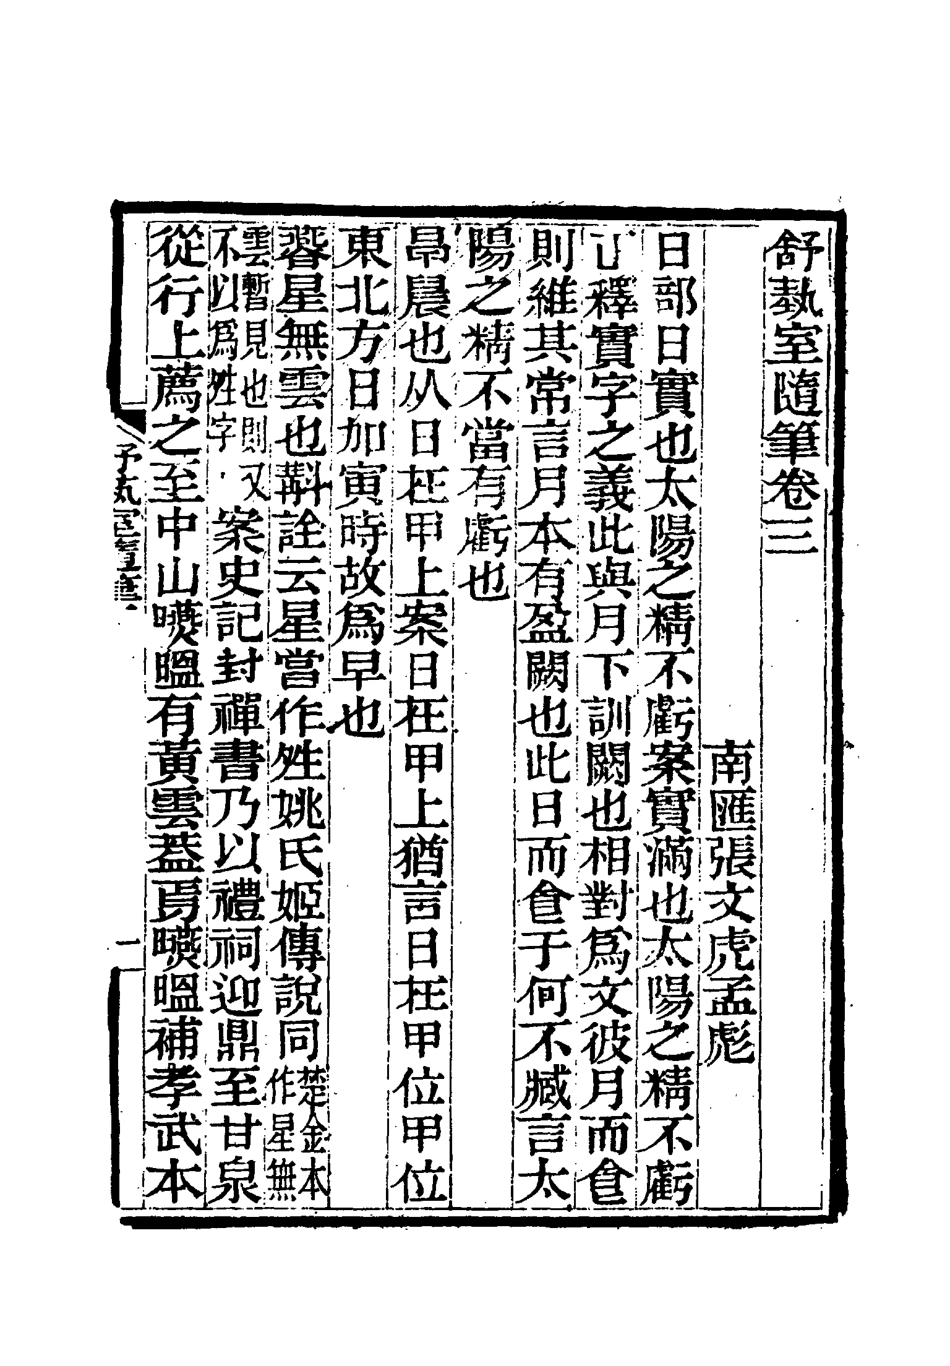 舒埶室隨筆卷三
南匯張文虎孟彪
日部日實也太陽之精不虧案實滿也太陽之精不虧
釋實字之義此與月下訓闕也相對爲文彼月而食
則維其常言月本有盈闕也此日而食于何不臧言太
陽之精不當有虧也
㫑晨也从日在甲上案日在甲上猶言日在甲位甲位
東北方日加寅時故爲早也
暜星無雲也斠詮云星當作姓姚氏姬傳說同楚金本
作星無
雲暫見也則又
不以爲姓字
案史記封禪書乃以禮祠迎鼎至甘泉
從行上薦之至中山曣㬈有黃雲葢焉曣㬈補孝武本
一